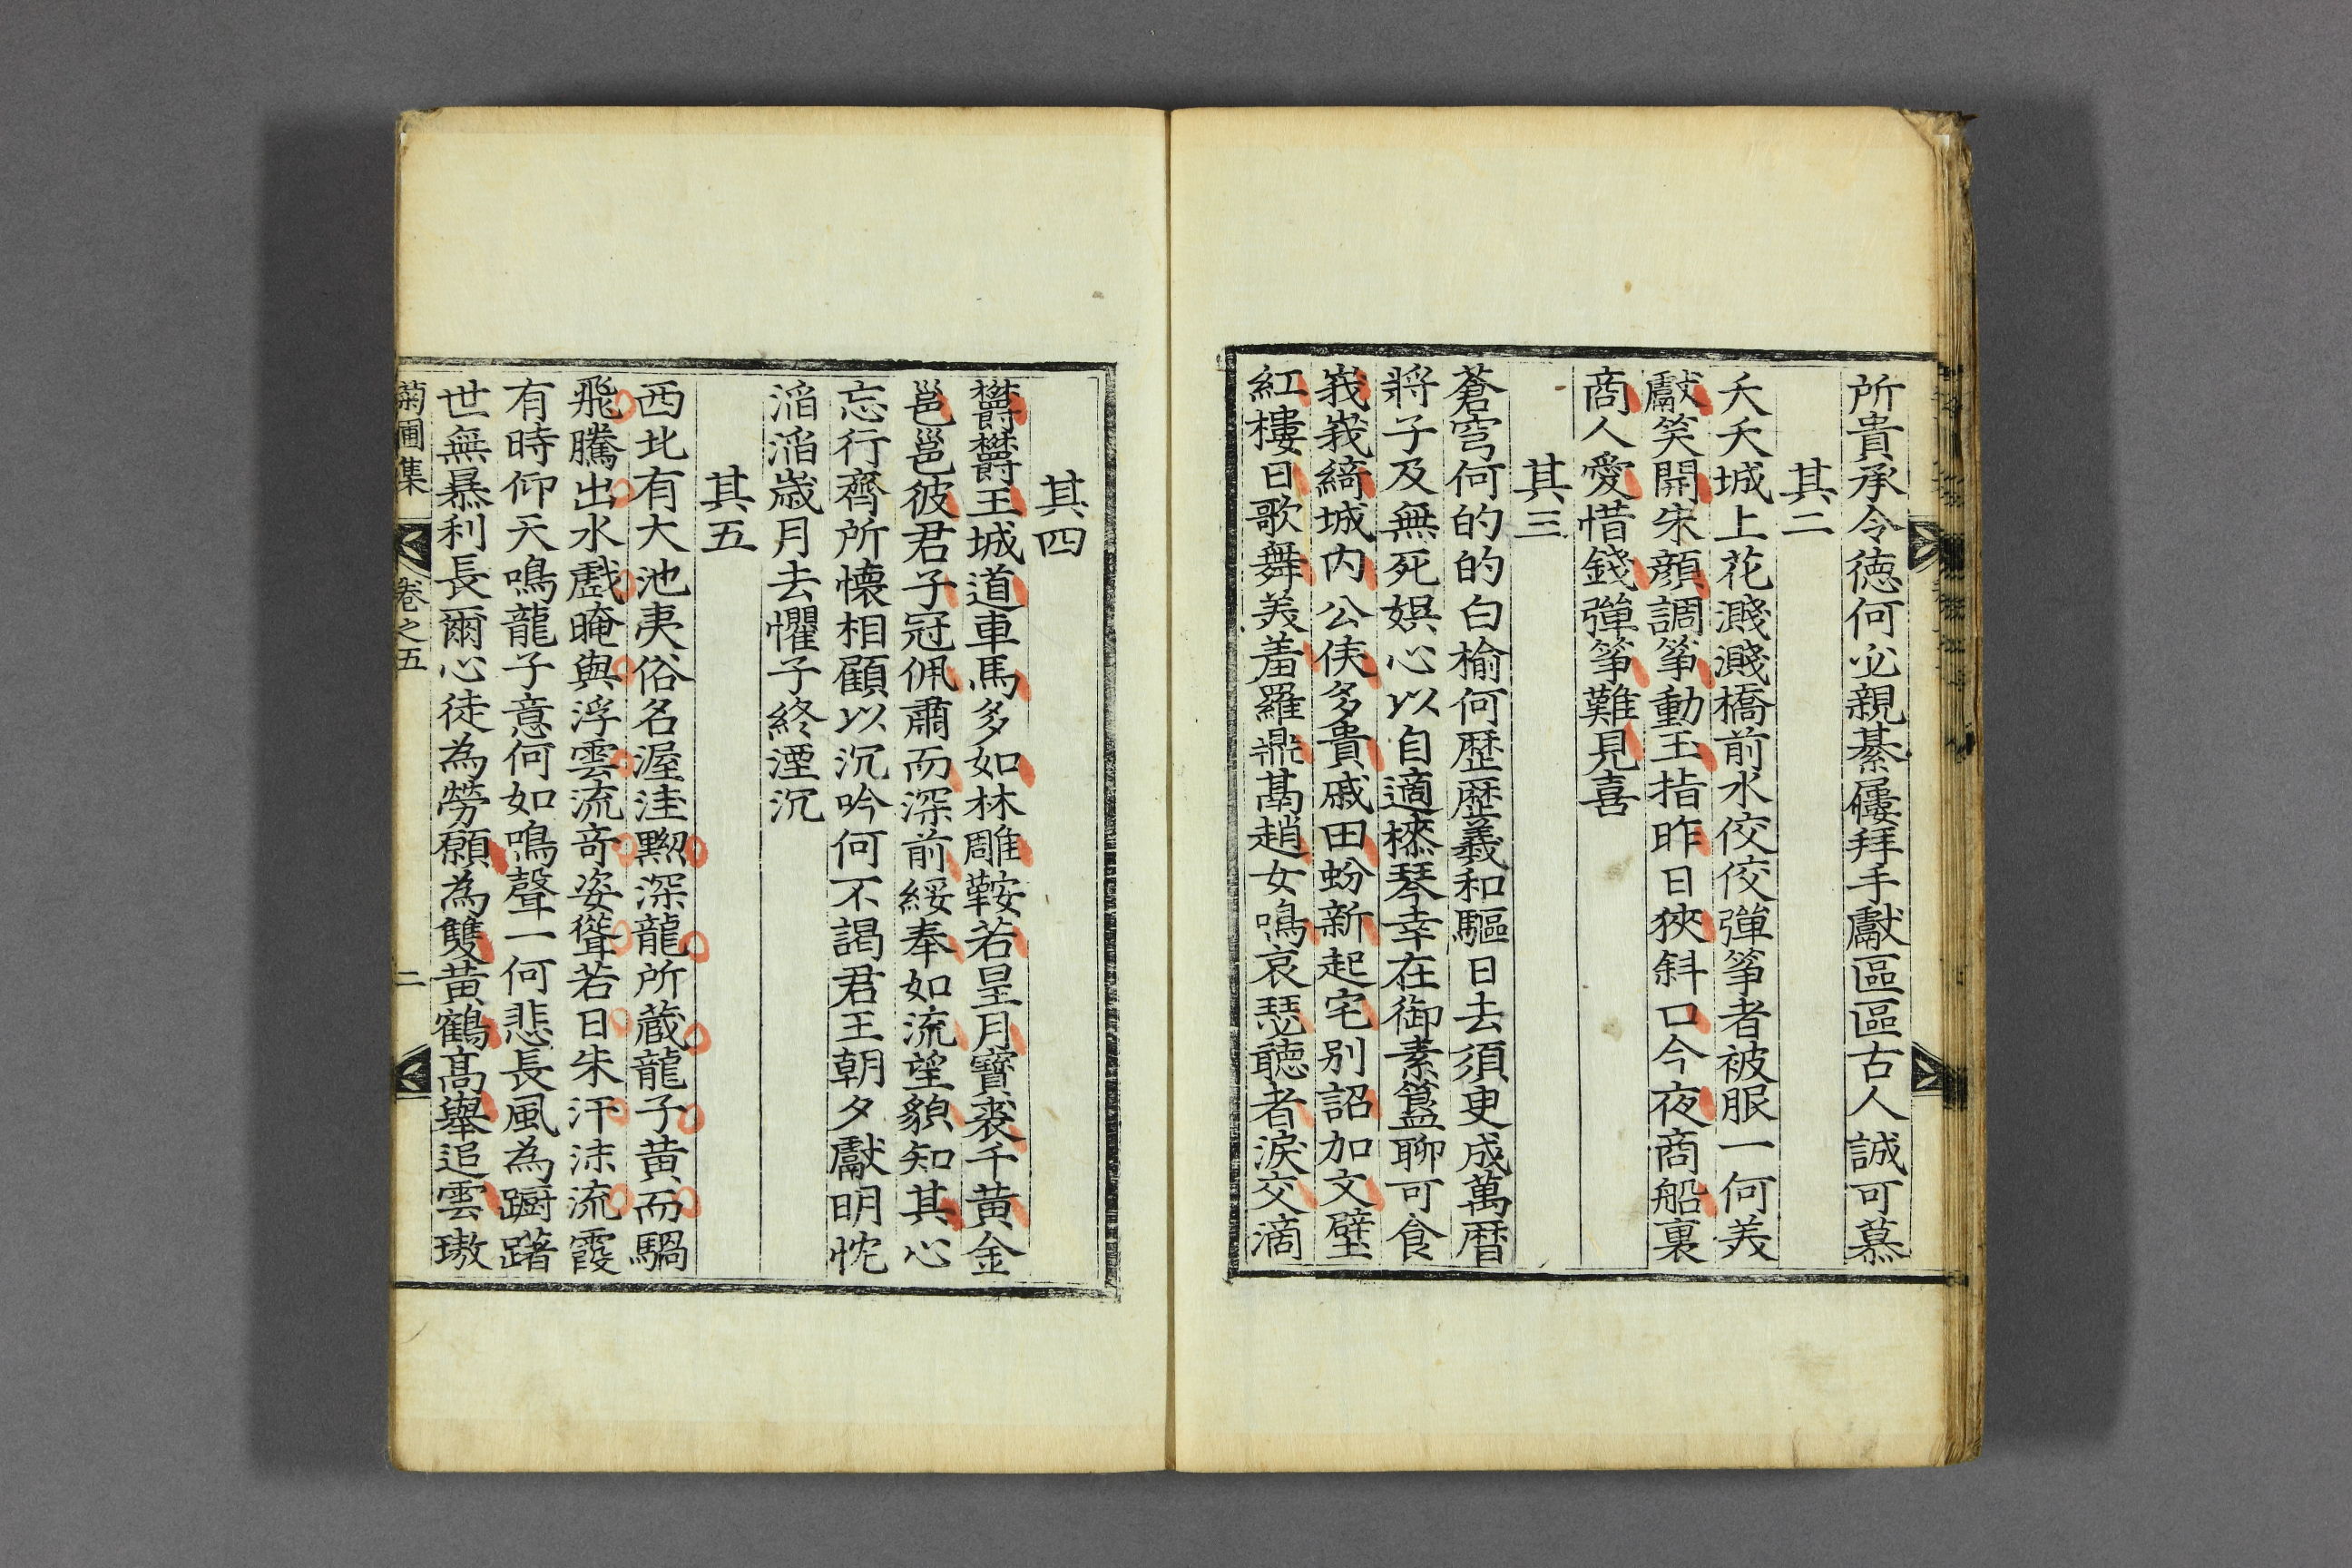 所貴承令德何必親綦屨拜手獻區區古人誠可慕
其二
夭夭城上花濺濺橋前水佼佼彈箏者被服一何美
獻笑開朱顏調箏動玉指昨日狹斜口今夜商船裏
商人愛惜錢彈箏難見喜
其三
蒼穹何的的白榆何歷歷羲和驅日去須臾成萬曆
將子及無死娛心以自適樑琴幸在御素簋聊可食
峩峩綺城內公侯多貴戚田蚡新起宅別詔加文壁
紅樓日歌舞美羞羅鼎鬲趙女鳴哀瑟聽者淚交滴
其四
欝欝王城道車馬多如林雕鞍若星月寶裘千黃金
邕邕彼君子冠佩肅而深前綏奉如流望貌知其心
忘行齊所懷相顧以沉吟何不謁君王朝夕獻明忱
滔滔歲月去懼子終湮沉
其五
西北有大池夷俗名渥洼黝深龍所藏龍子黃而騧
飛騰出水戲晻與浮雲流奇姿聳若日朱汗沫流霞
有時仰天鳴龍子意何如鳴聲一何悲長風為躕躇
世無暴利長爾心徒為勞願為雙黃鶴高舉追雲璈
菊圃集 卷之五 二